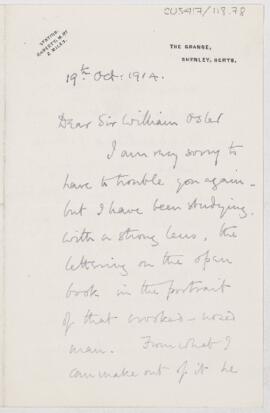 CUS417/118.78
STATION
2 MILES.
THE GRANGE,
SHENLEY, HERTS.
19th Oct. 1914.
Dear Sir William Osler
I am very sorry to
have to trouble you again -
but I have been studying,
with a strong lens, the
lettering on the open
book in the portrait
of that crooked-nosed
man. From what I
can make out of it he